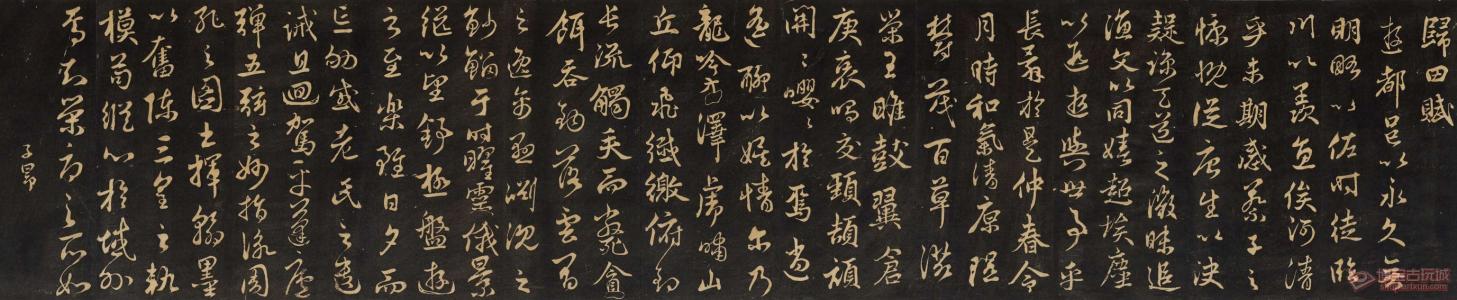 歸田賦
遊都邑以永久無
明略以佐時徒臨
川以羨魚俟河清
乎未期感蔡子之
慷慨從唐生以決
疑諒天道之微昧追
漁父以同嬉超埃塵
以遐逝與世事乎
長辭於是仲春令
月時和氣清原隰
鬱茂百草滋
榮王雎鼓翼倉
庚哀鳴交頸頡頏
關〻嚶〻於焉逍
遙聊以娛情爾乃
龍吟方澤虎嘯山
丘仰飛纖繳俯釣
長流觸矢而斃貪
餌吞鉤落雲間
之逸禽懸淵沉之
魦鰡于時曜靈俄景
繼以望舒極盤遊
之至樂雖日夕而
忘劬感老氏之遺
誡且迴駕乎蓬廬
彈五弦之妙指詠周
孔之圖書揮翰墨
以奮藻陳三皇之軌
模苟縱心於域外
焉知榮辱之所如
子昂